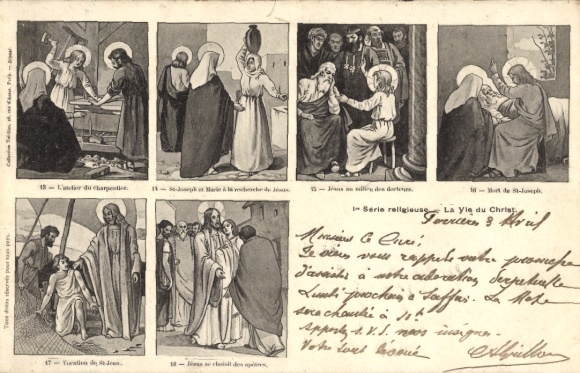 Collection Tobilon, 26, rue d'Assas, Paris. — Déposé.
Tous droits réservés pour tous pays.
13 – L'atelier du charpentier.
14 – St-Joseph et Marie à la recherche de Jésus.
15 – Jésus au milieu des docteurs.
16 – Mort de St-Joseph.
1re Série religieuse. — La Vie du Christ.
17 – Vocation du St-Jean.
18 – Jésus se choisit des apôtres.
3 Avril
Monsieur le Curé,
Je viens vous rappeler votre promesse
d'assister à notre adoration perpetuelle
Lundi prochain à La
sera chantée à
Apportez s. v. p. vos insignes.
Votre tout dévoué